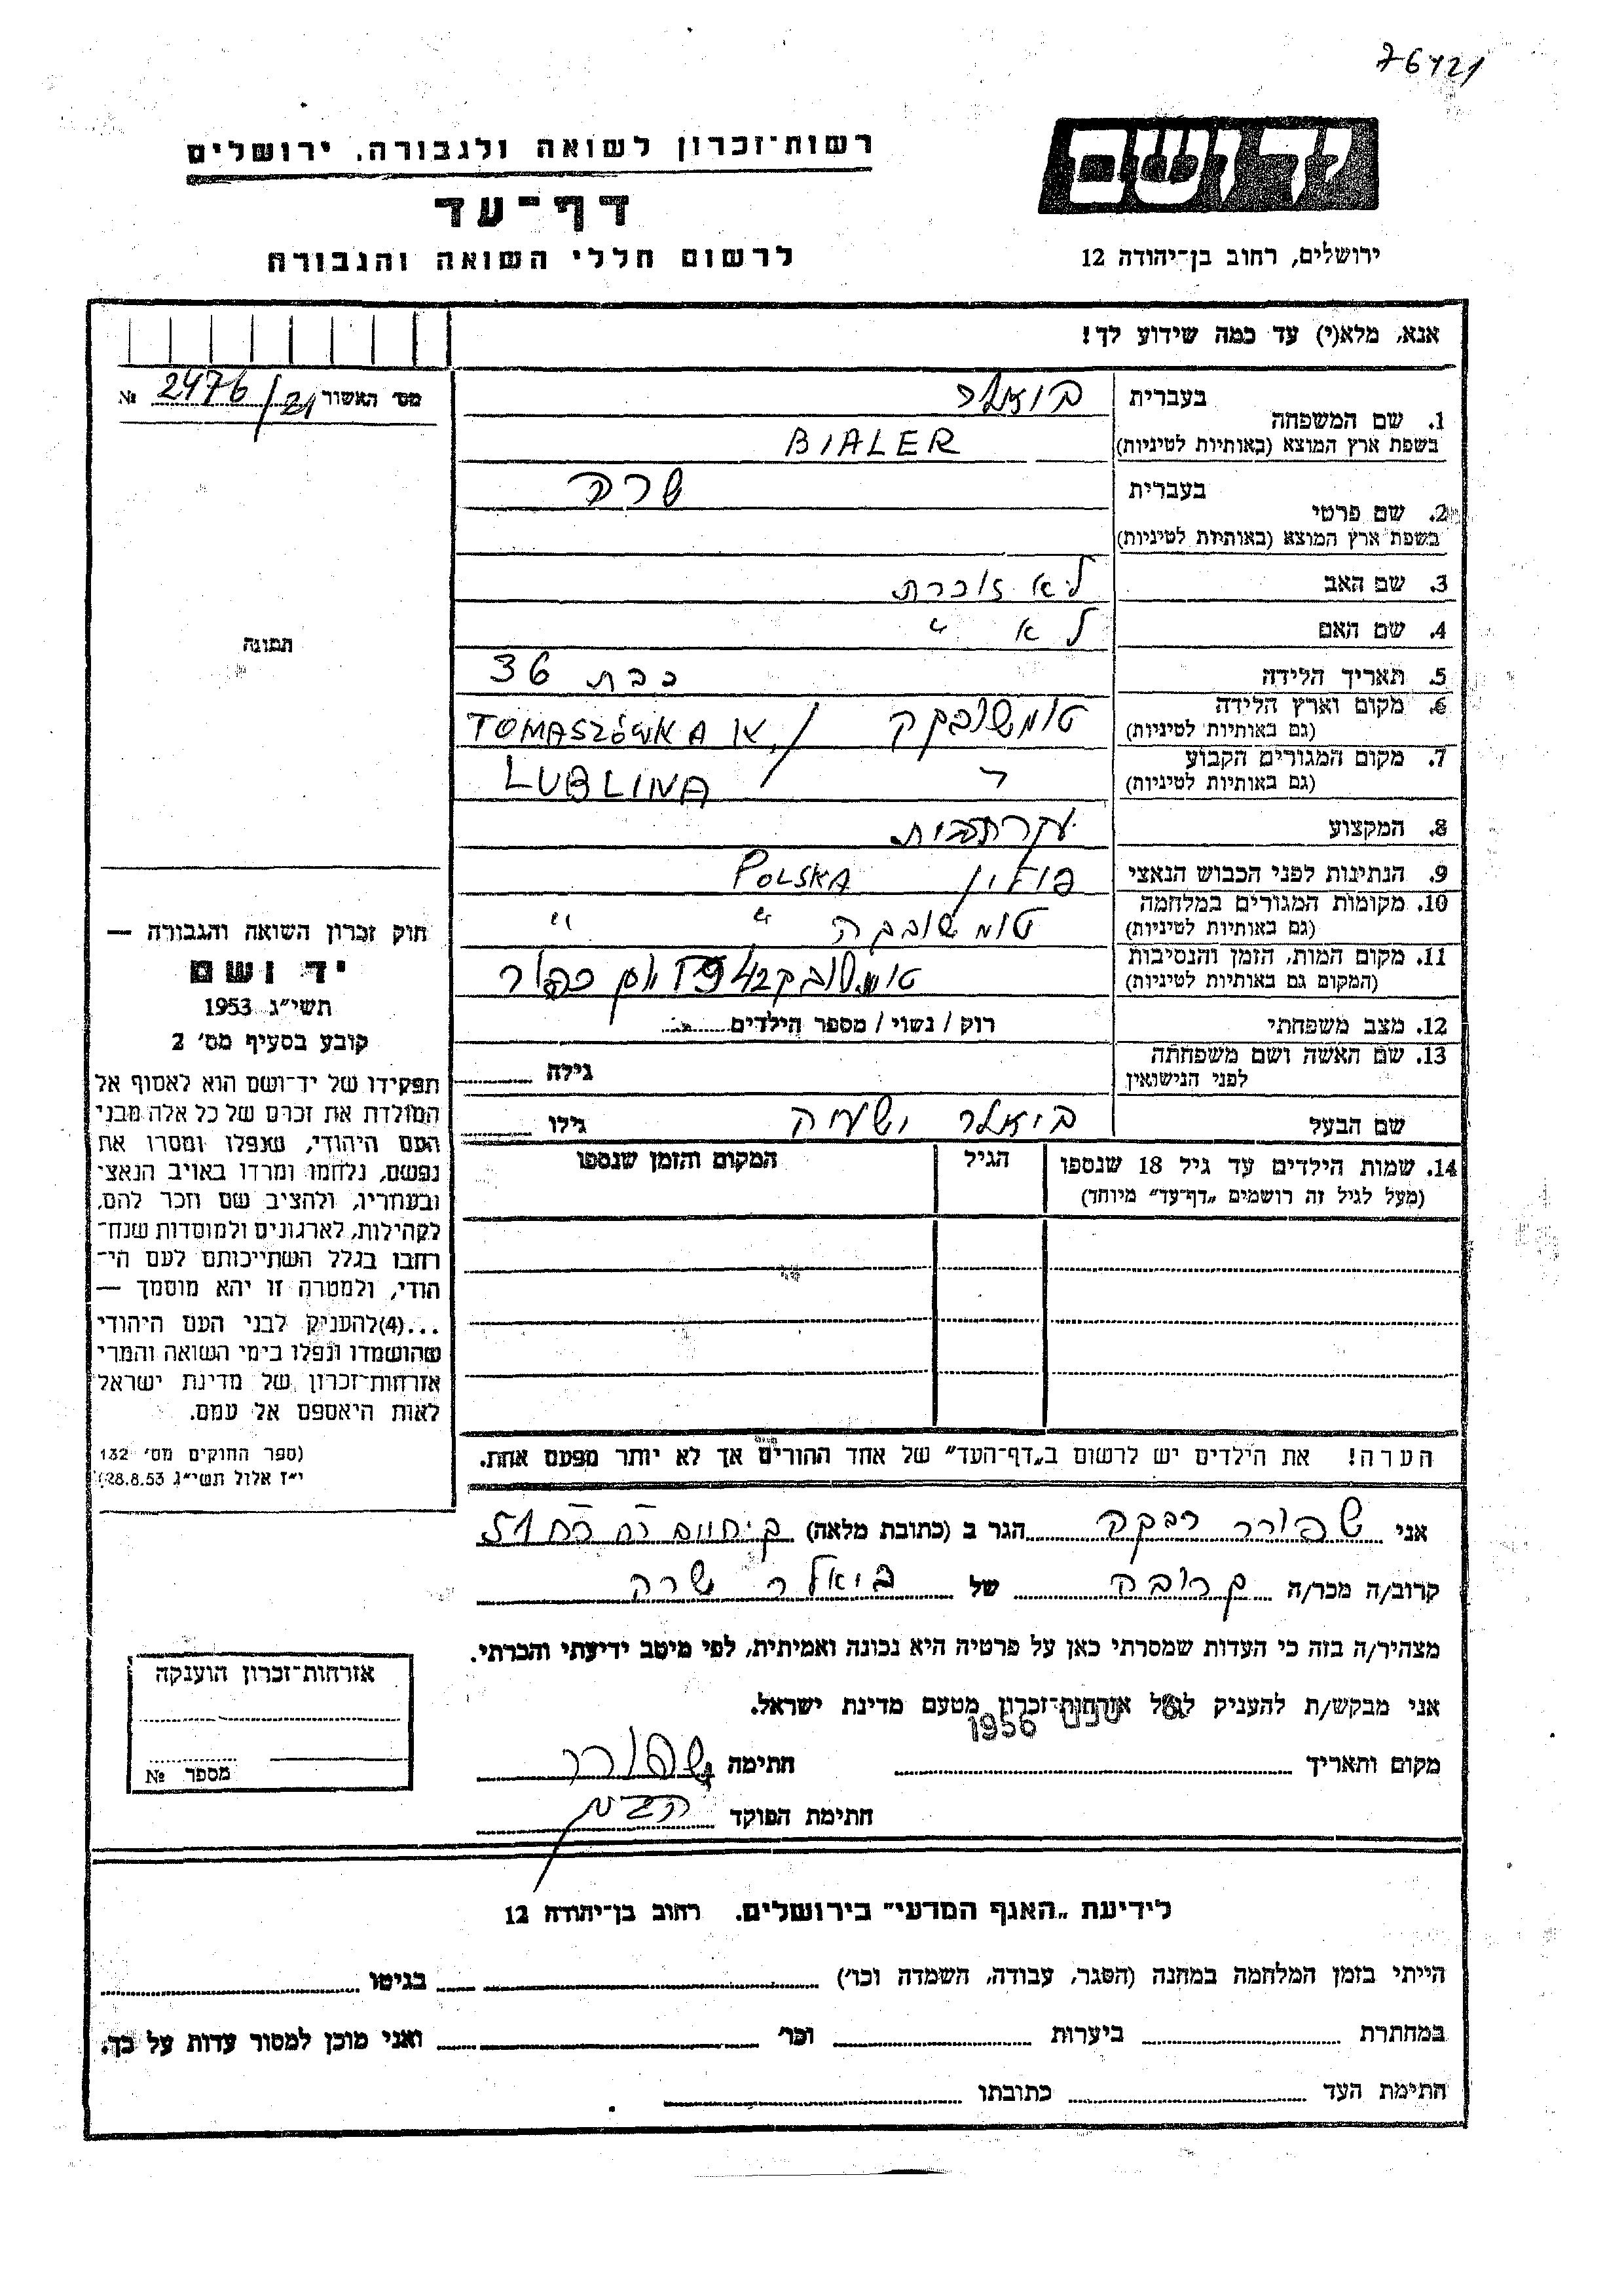 76421
רשות־זכרון לשואה ולגבורה, ירושלים
דף־עד
לרשום חללי השואה והגבורה
יד ושם
ירושלים, רחוב בן־יהודה 12
אנא, מלא(י) עד כמה שידוע לך!
מס׳ האשור 2476/21 №
תמונה
חוק זכרון השואה והגבורה —
יד ושם
תשי״ג 1953
קובע בסעיף מס׳ 2
תפקידו של יד־ושם הוא לאסוף אל
המולדת את זכרם של כל אלה מבני
העם היהודי, שנפלו ומסרו את
נפשם, נלחמו ומרדו באויב הנאצי
ובעוזריו, ולהציב שם וזכר להם,
לקהילות, לארגונים ולמוסדות שנח־
רבו בגלל השתייכותם לעם הי־
הודי, ולמטרה זו יהא מוסמך —
...(4) להעניק לבני העם היהודי
שהושמדו ונפלו בימי השואה והמרי
אזרחות־זכרון של מדינת ישראל
לאות היאספם אל עמם.
(ספר החוקים מס׳ 132
י״ז אלול תשי״ג 28.8.53)
1. שם המשפחה
בעברית ביאלר
בשפת ארץ המוצא (באותיות לטיניות) BIALER
2. שם פרטי
בעברית שרה
בשפת ארץ המוצא (באותיות לטיניות)
3. שם האב לא זוכרת
4. שם האם לא "
5. תאריך הלידה כבת 36
6. מקום וארץ הלידה
(גם באותיות לטיניות) טומשובקה / TOMASZÓWKA
7. מקום המגורים הקבוע
(גם באותיות לטיניות) LUBLINA
8. המקצוע עקרת בית
9. הנתינות לפני הכבוש הנאצי פולין POLSKA
10. מקומות המגורים במלחמה
(גם באותיות לטיניות) טומשובקה " "
11. מקום המות, הזמן והנסיבות
(המקום גם באותיות לטיניות) טומשובקה 1942
12. מצב משפחתי רוק / נשוי / מספר הילדים
13. שם האשה ושם משפחתה
לפני הנישואין גילה
שם הבעל ביאלר ישעיה גילו
14. שמות הילדים עד גיל 18 שנספו הגיל המקום והזמן שנספו
(מעל לגיל זה רושמים „דף־עד״ מיוחד)
הערה! את הילדים יש לרשום ב„דף־העד״ של אחד ההורים אך לא יותר מפעם אחת.
אני שפורר רבקה הגר ב (כתובת מלאה) 51
קרוב/ה מכר/ה קרובה של ביאלר שרה
מצהיר/ה בזה כי העדות שמסרתי כאן על פרטיה היא נכונה ואמיתית, לפי מיטב ידיעתי והכרתי.
אני מבקש/ת להעניק לנ״ל אזרחות־זכרון מטעם מדינת ישראל.
1956
מקום ותאריך חתימה שפורר
חתימת הפוקד
אזרחות־זכרון הוענקה
מספר №
לידיעת „האגף המדעי״ בירושלים. רחוב בן־יהודה 12
הייתי בזמן המלחמה במחנה (הסגר, עבודה, השמדה וכו׳) בגיטו
במחתרת ביערות וכו׳ ואני מוכן למסור עדות על כך.
חתימת העד כתובתו